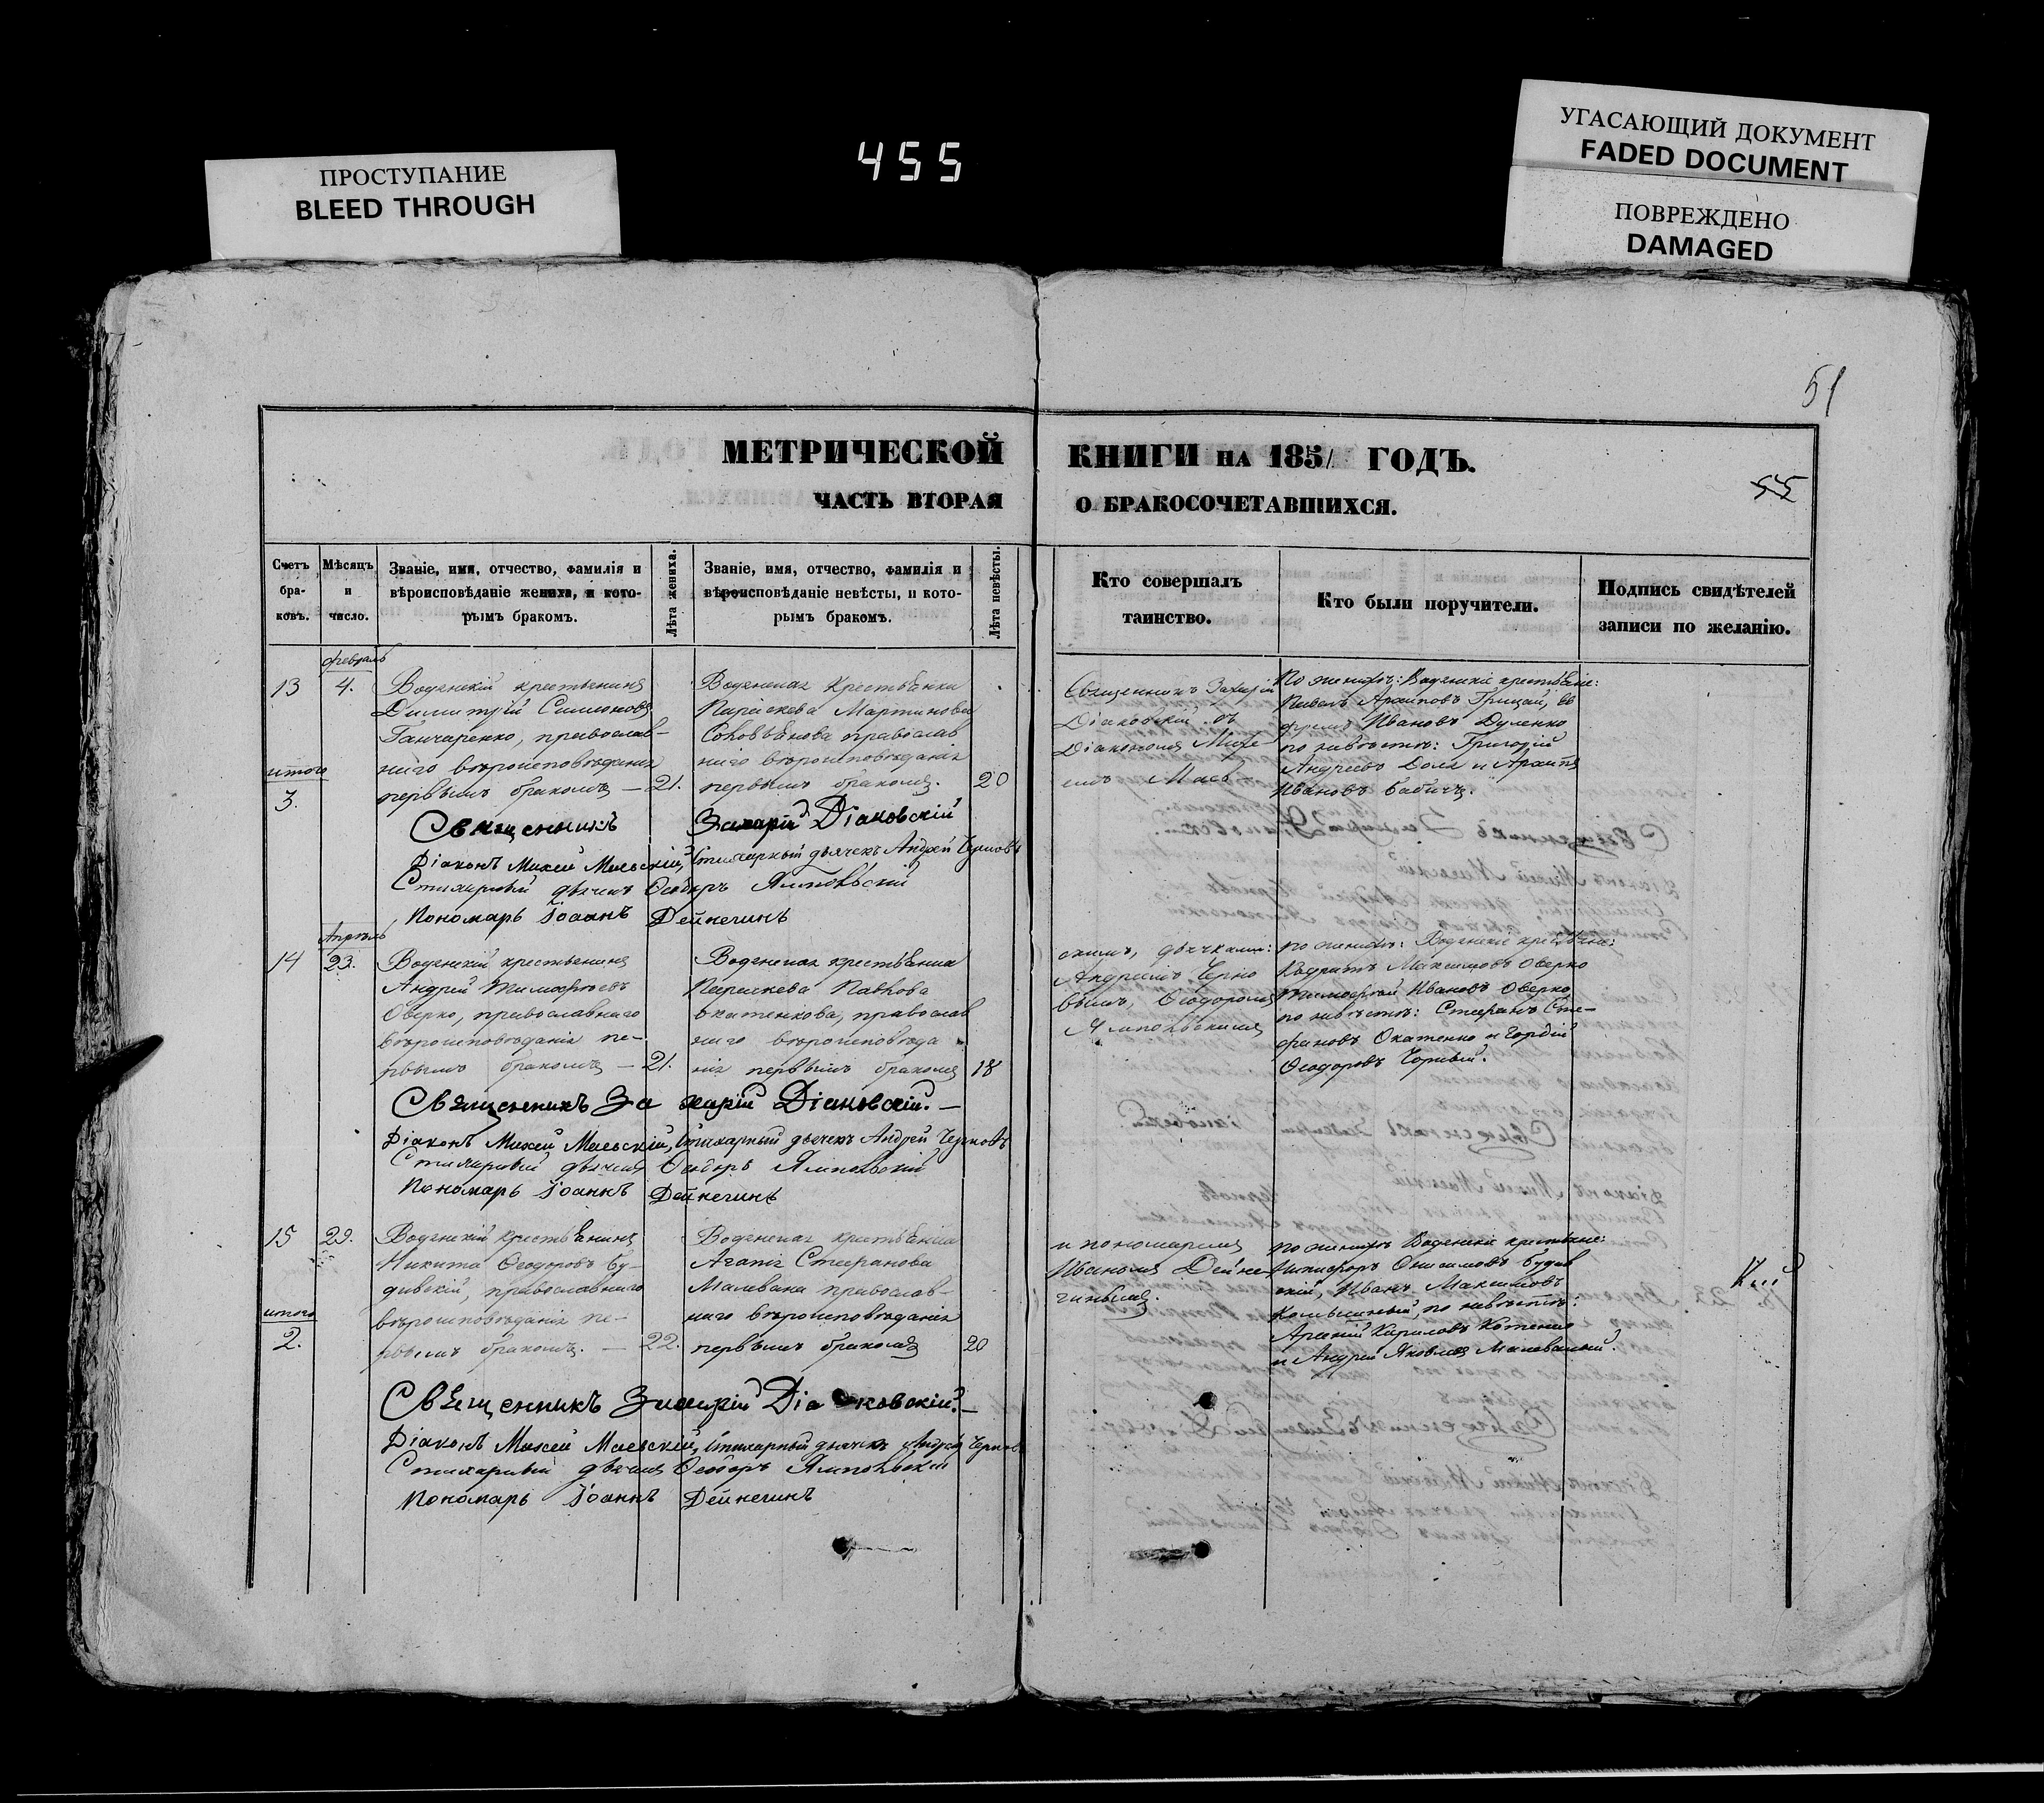 УГАСАЮЩИЙ ДОКУМЕНТ
FADED DOCUMENT
ПРОСТУПАНИЕ
BLEED THROUGH
455
ПОВРЕЖДЕНО
DAMAGED
51
МЕТРИЧЕСКОЙ КНИГИ НА 1851 ГОДЪ.
55
ЧАСТЬ ВТОРАЯ О БРАКОСОЧЕТАВШИХСЯ.
Счетъ браковъ.
Мѣсяцъ и число.
Званіе, имя, отчество, фамилія и
вѣроисповѣданіе жениха, и кото-
рымъ бракомъ.
Лѣта жениха.
Званіе, имя, отчество, фамилія и
вѣроисповѣданіе невѣсты, и кото-
рымъ бракомъ.
Лѣта невѣсты.
Кто совершалъ
таинство.
Кто были поручители.
Подпись свидѣтелей
записи по желанію.
февраль
13
4.
Водянскій крестьянинъ
Димитрій Симоновъ
Ганчаренко, православ-
наго вѣроисповѣданія
первымъ бракомъ — 21.
Водянская крестьянка
Параскева Мартинова
православ
наго вѣроисповѣданія
первымъ бракомъ. 20
Священникъ Захарій
Діаковскій съ
Діакономъ Михе
емъ Маев
По женихѣ: Водянскіе крестьяне:
Павелъ Архиповъ Грицай,
Ивановъ Дуленко
по невѣстѣ: Григорій
Андреевъ Доля и Архипъ
Ивановъ Бабичъ.
итого
3.
Священникъ Захарій Діаковскій
Діаконъ Михей Маевскій, Стихарный дьячекъ Андрей Черновъ
Стихарный дьячекъ Ѳеодоръ Ямпольскій
Пономарь Іоаннъ Дейнегинъ
Апрѣль
14
23.
Водянскій крестьянинъ
Андрей Тимофѣевъ
Оверко, православнаго
вѣроисповѣданія пе-
рвымъ бракомъ — 21.
Водянская крестьянка
Параскева Павлова
Окатенкова, православ
наго вѣроисповѣда
нія первымъ бракомъ 18
скимъ, дьячками:
Андреемъ Черно
вымъ, Ѳеодоромъ
Ямпольскимъ
по женихѣ: Водянскіе крестьяне:
Кодратъ Максимовъ Оверко
Тимофѣй Ивановъ Оверко
по невѣстѣ: Стефанъ Сте-
фановъ Окатенко и Гордій
Ѳеодоровъ Чорный.
Священникъ Захарій Діаковскій. —
Діаконъ Михей Маевскій, Стихарный дьячекъ Андрей Черновъ
Стихарный дьячекъ Ѳеодоръ Ямпольскій
Пономарь Іоаннъ Дейнегинъ
15
29.
Водянскій крестьянинъ
Никита Ѳеодоровъ Бу-
дивскій, православнаго
вѣроисповѣданія пе-
рвымъ бракомъ. — 22.
Водянская крестьянка
Агапія Стефанова
Малевана православ-
наго вѣроисповѣданія
первымъ бракомъ 20
и пономаремъ
Иваномъ Дейне
гинымъ.
по женихѣ Водянскіе крестьяне:
Никифоръ Онисимовъ Будив
скій, Иванъ Максимовъ
по невѣстѣ:
Арсеній Кириловъ Котенко
и Андрей Яковлевъ Малеваный.
итого
2.
Священникъ Захарій Діаковскій. —
Діаконъ Михей Маевскій, Стихарный дьячекъ Андрей Черновъ
Стихарный дьячекъ Ѳеодоръ Ямпольскій
Пономарь Іоаннъ Дейнегинъ